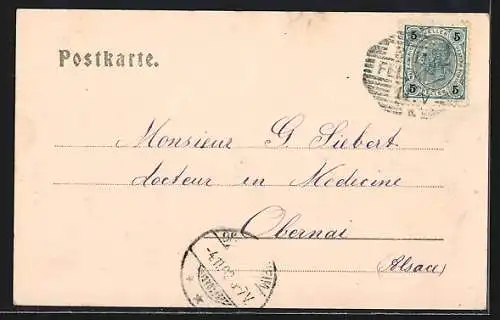 Postkarte.
5 HELLER 5
5 5
Monsieur G. Siebert
docteur en Medecine
Obernai
(Alsace)